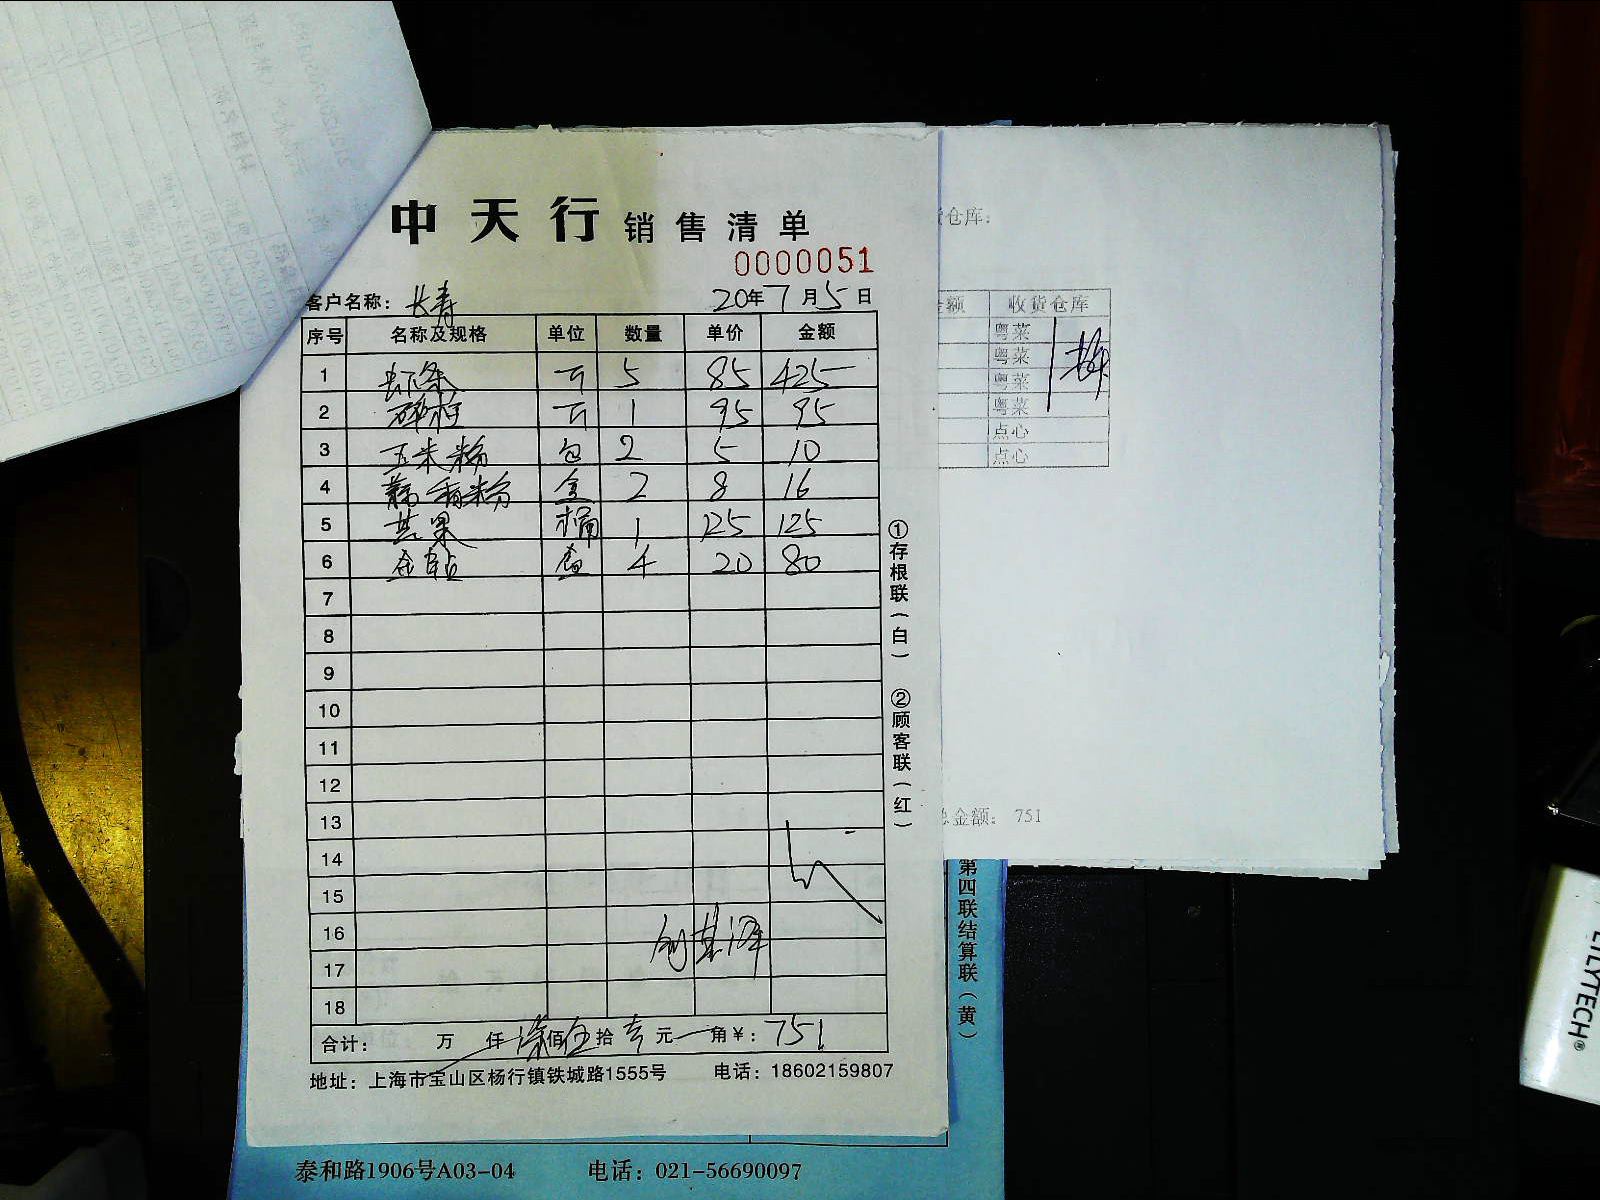 中天行 销售清单
0000051
客户名称：长寿 20年7月5日
序号 名称及规格 单位 数量 单价 金额
1 虾条 斤 5 85 425
2 碎柱 斤 1 95 95
3 玉米粉 包 2 5 10
4 香粉 盒 2 8 16
5 果 桶 1 125 125
6 金钻 盒 4 20 80
7
8
9
10
11
12
13
14
15
16
17
18
合计： 万 仟 柒佰伍拾壹元 角 ¥：751
地址：上海市宝山区杨行镇铁城路1555号 电话：18602159807
①存根联（白） ②顾客联（红）
货仓库：
金额 收货仓库
粤菜
粤菜
粤菜
粤菜
点心
点心
总金额：751
第四联结算联（黄）
泰和路1906号A03-04 电话：021-56690097
LILYTECH®